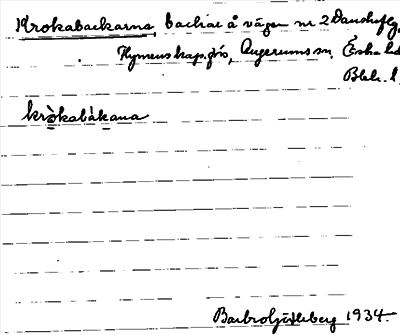 Krokabackarna, backar å vägen nr 2 Danskeflg,
Hymenskap.fös, Augerums sn, Östra hd
Blek. l.
kròkabàkana
Barbro Ljuleberg 1934.